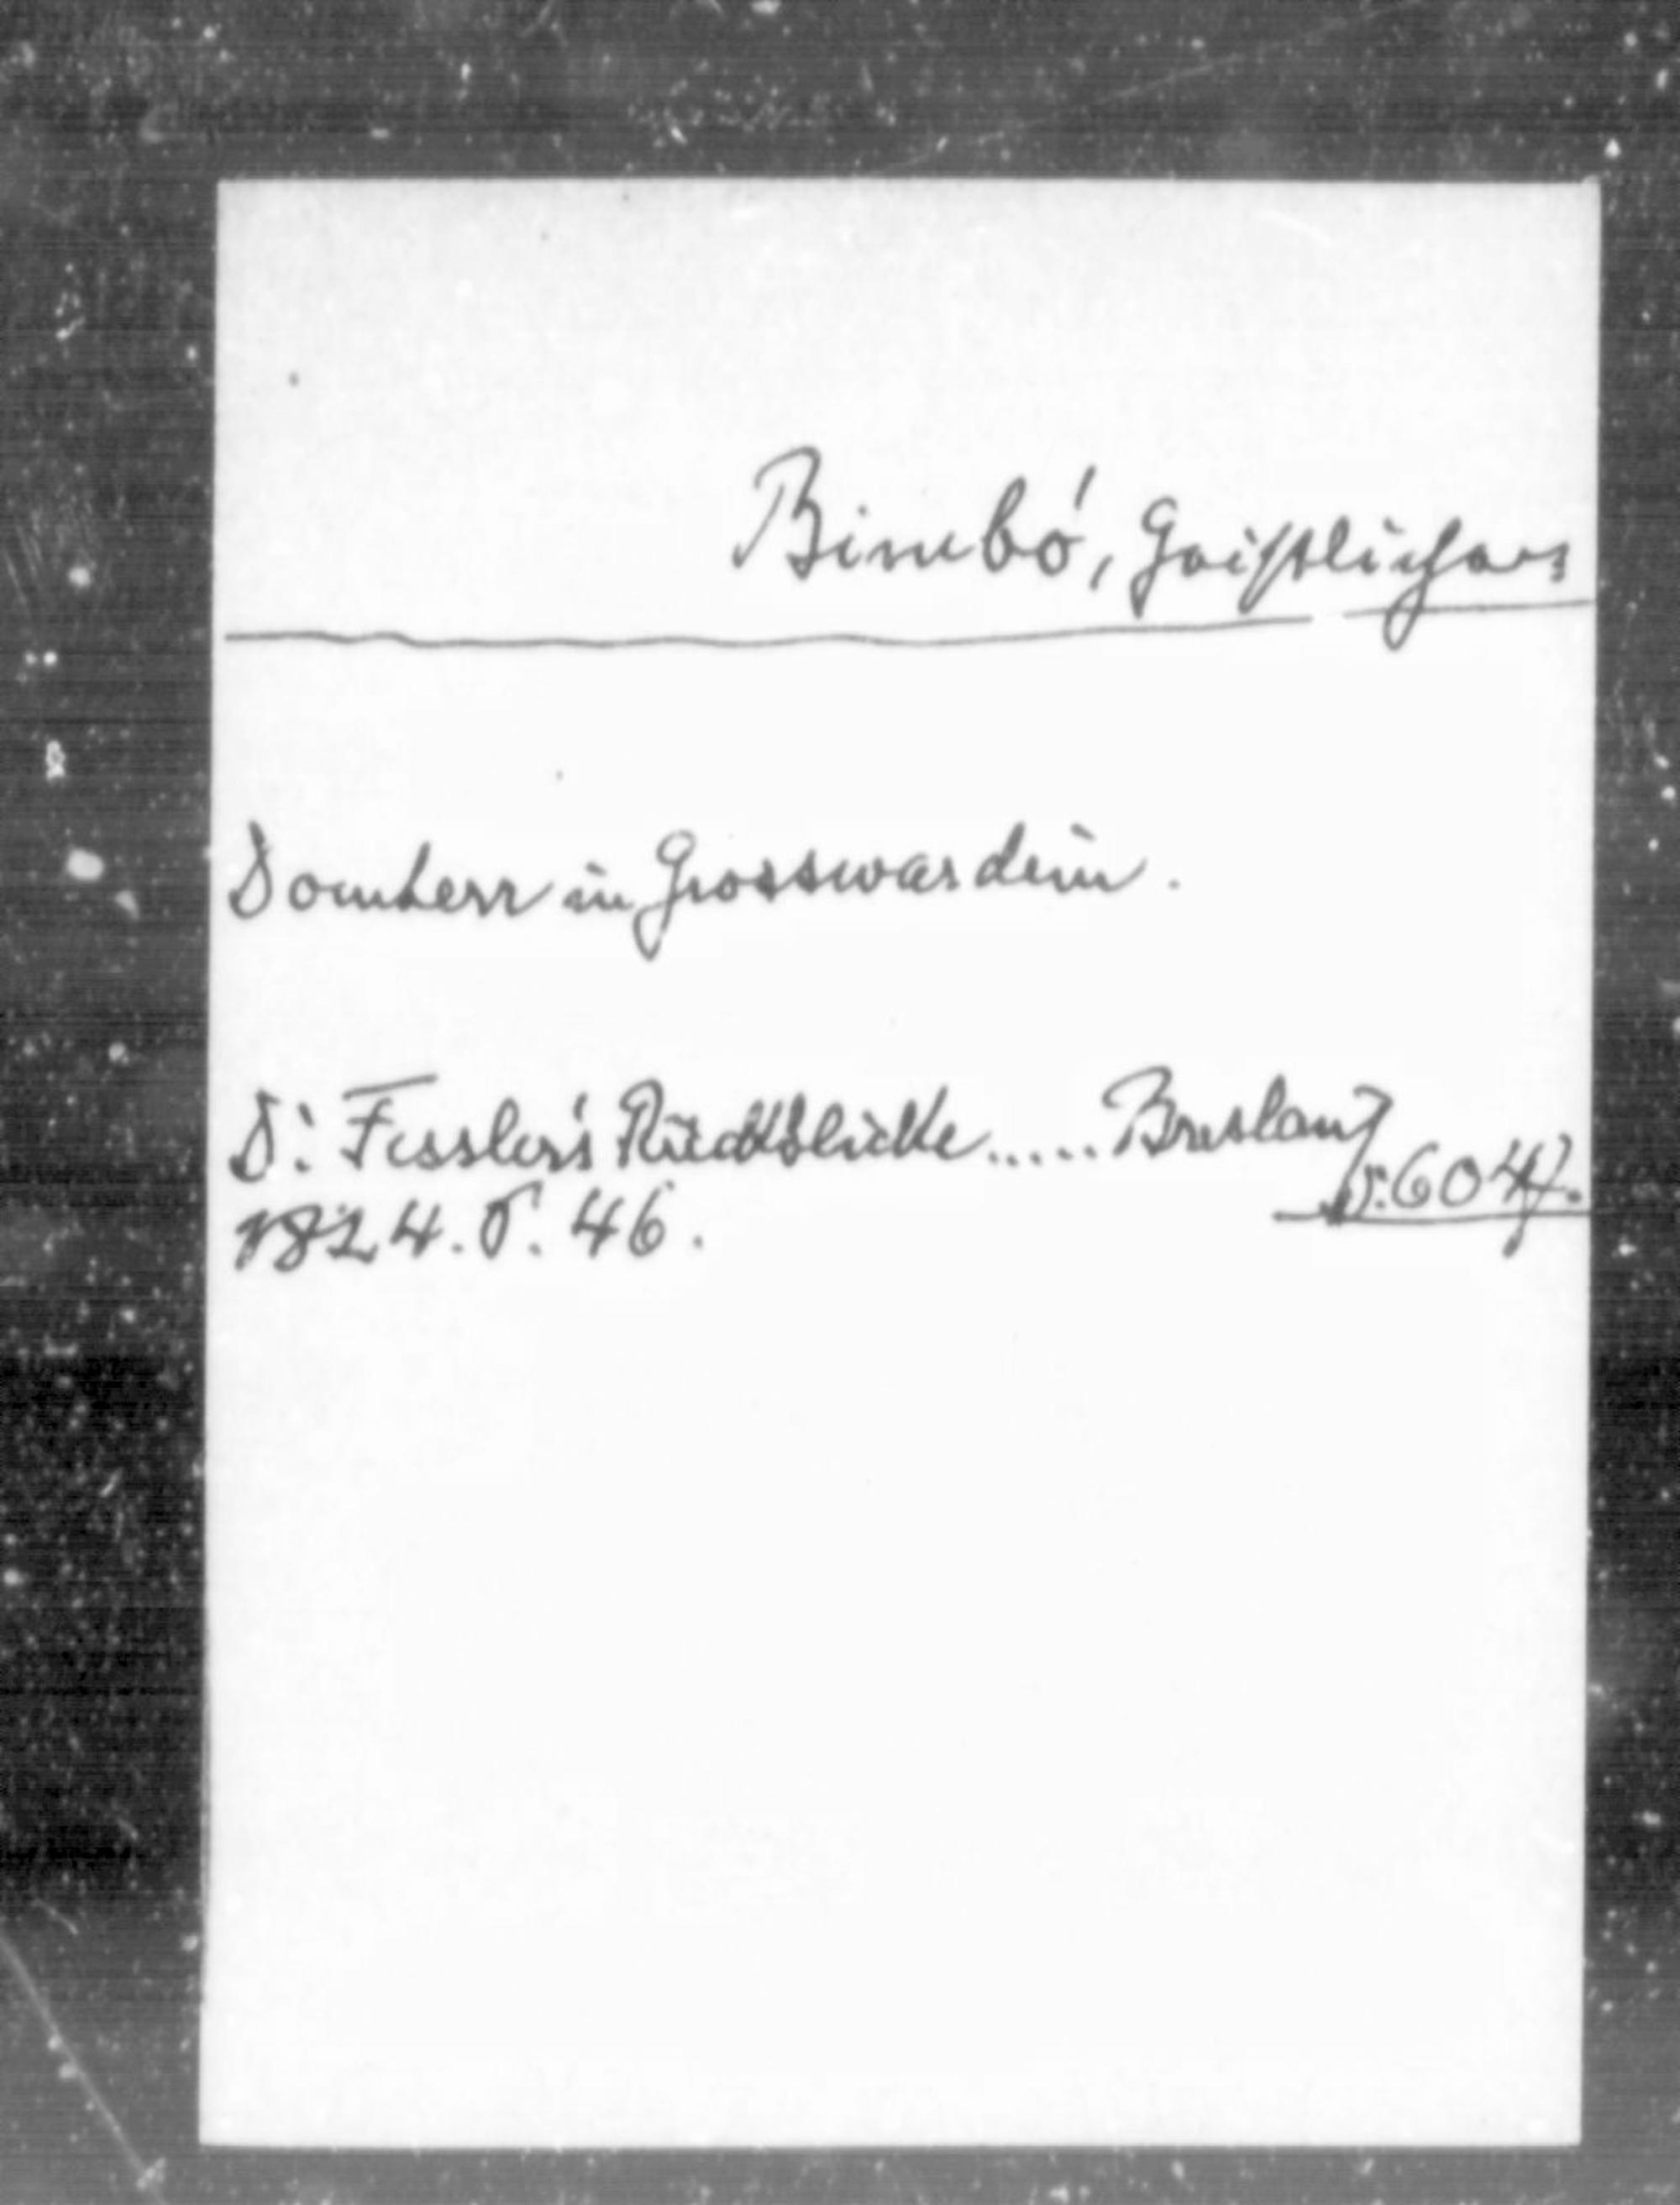 Bimbó, Geistlicher
Domherr in Grosswardein.
Dr. Fessler's Rückblicke ..... Breslau
1824. S. 46.